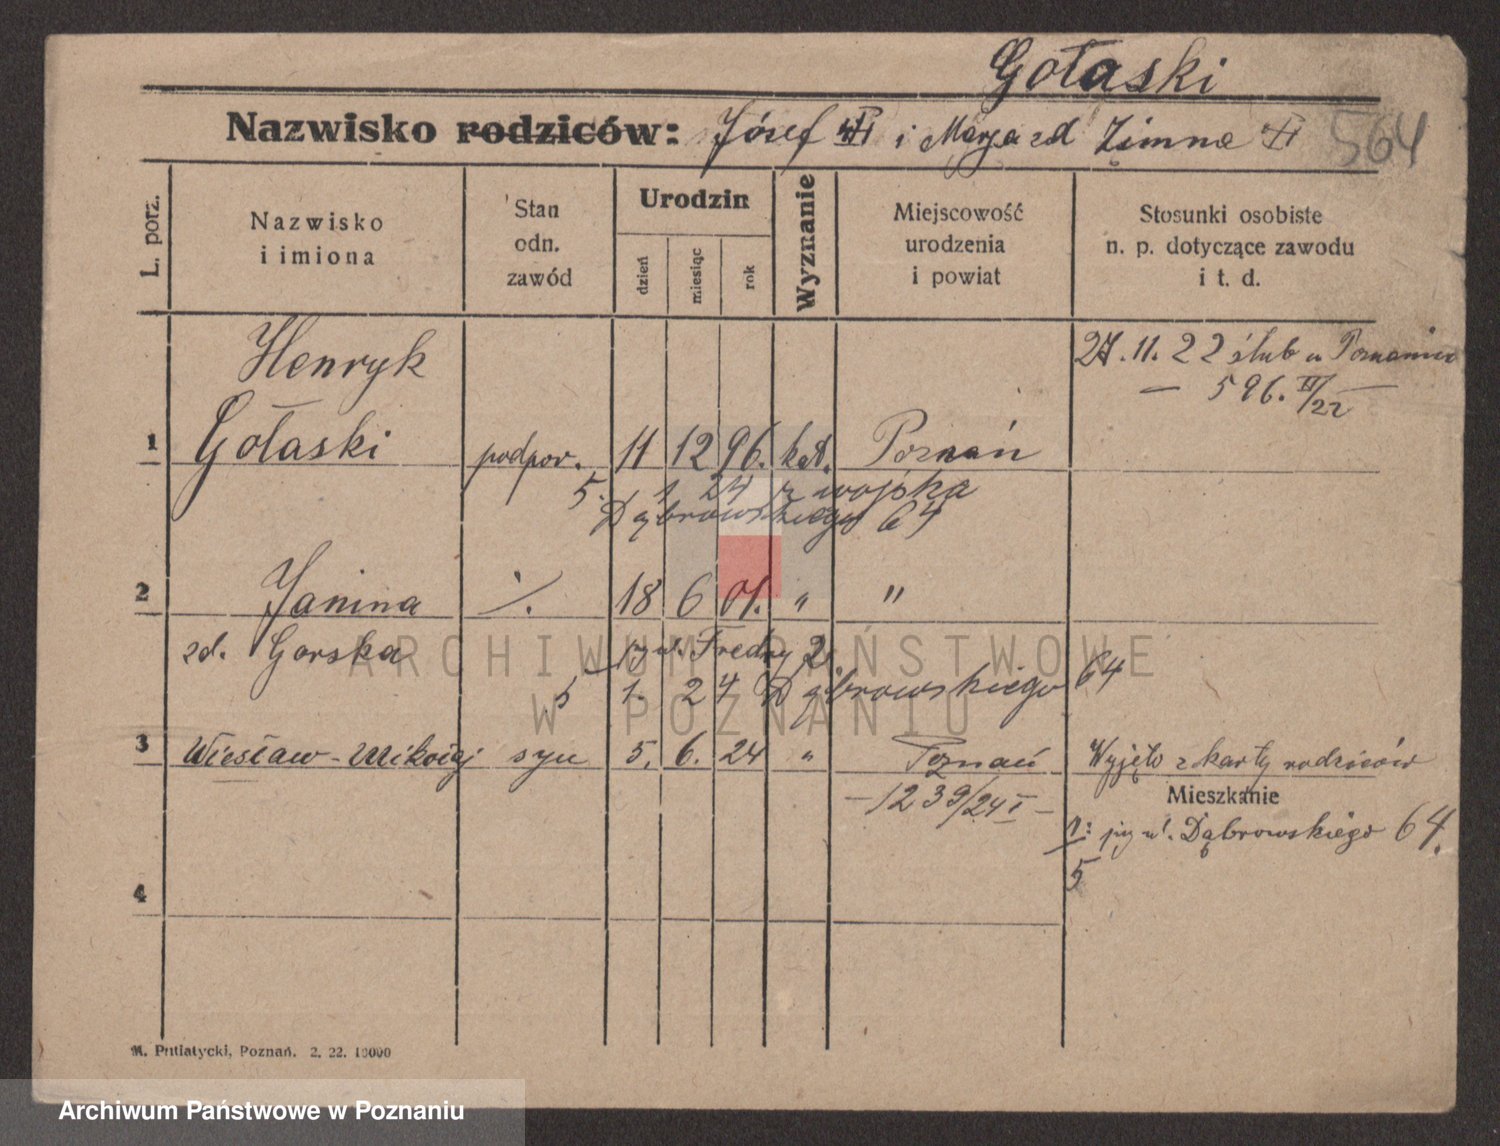 Gołaski
Nazwisko rodziców: Józef i Marja zd Zimna 564
L. porz.
Nazwisko
i imiona
Stan
odn.
zawód
Urodzin
dzień
miesiąc
rok
Wyznanie
Miejscowość
urodzenia
i powiat
Stosunki osobiste
n. p. dotyczące zawodu
i t. d.
27. 11. 22 ślub w Poznaniu
— 596. III/22 —
Henryk
1 Gołaski podpor. 11 12 96. kat. Poznań
5. 1 24 z wojska
Dąbrowskiego 64
2 Janina ·/. 18 6 01. " "
zd. Gorska przy ul. Fredry 2
5 1. 24 Dąbrowskiego 64
3 Wiesław-Mikołaj syn 5. 6. 24 " Poznań Wyjęto z karty rodziców
— 1239/24 I —
Mieszkanie
1: przy ul. Dąbrowskiego 64.
5
4
M. Putiatycki, Poznań. 2. 22. 10000
ARCHIWUM PAŃSTWOWE
W POZNANIU
Archiwum Państwowe w Poznaniu